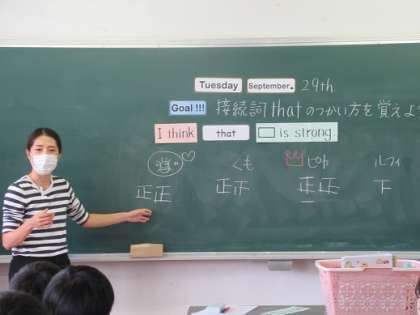 Tuesday September. 29th
Goal!!! 接続詞 that のつかい方を覚えよ
I think that □ is strong.
くも ピカ ルフィ
正正 正正 正正 下